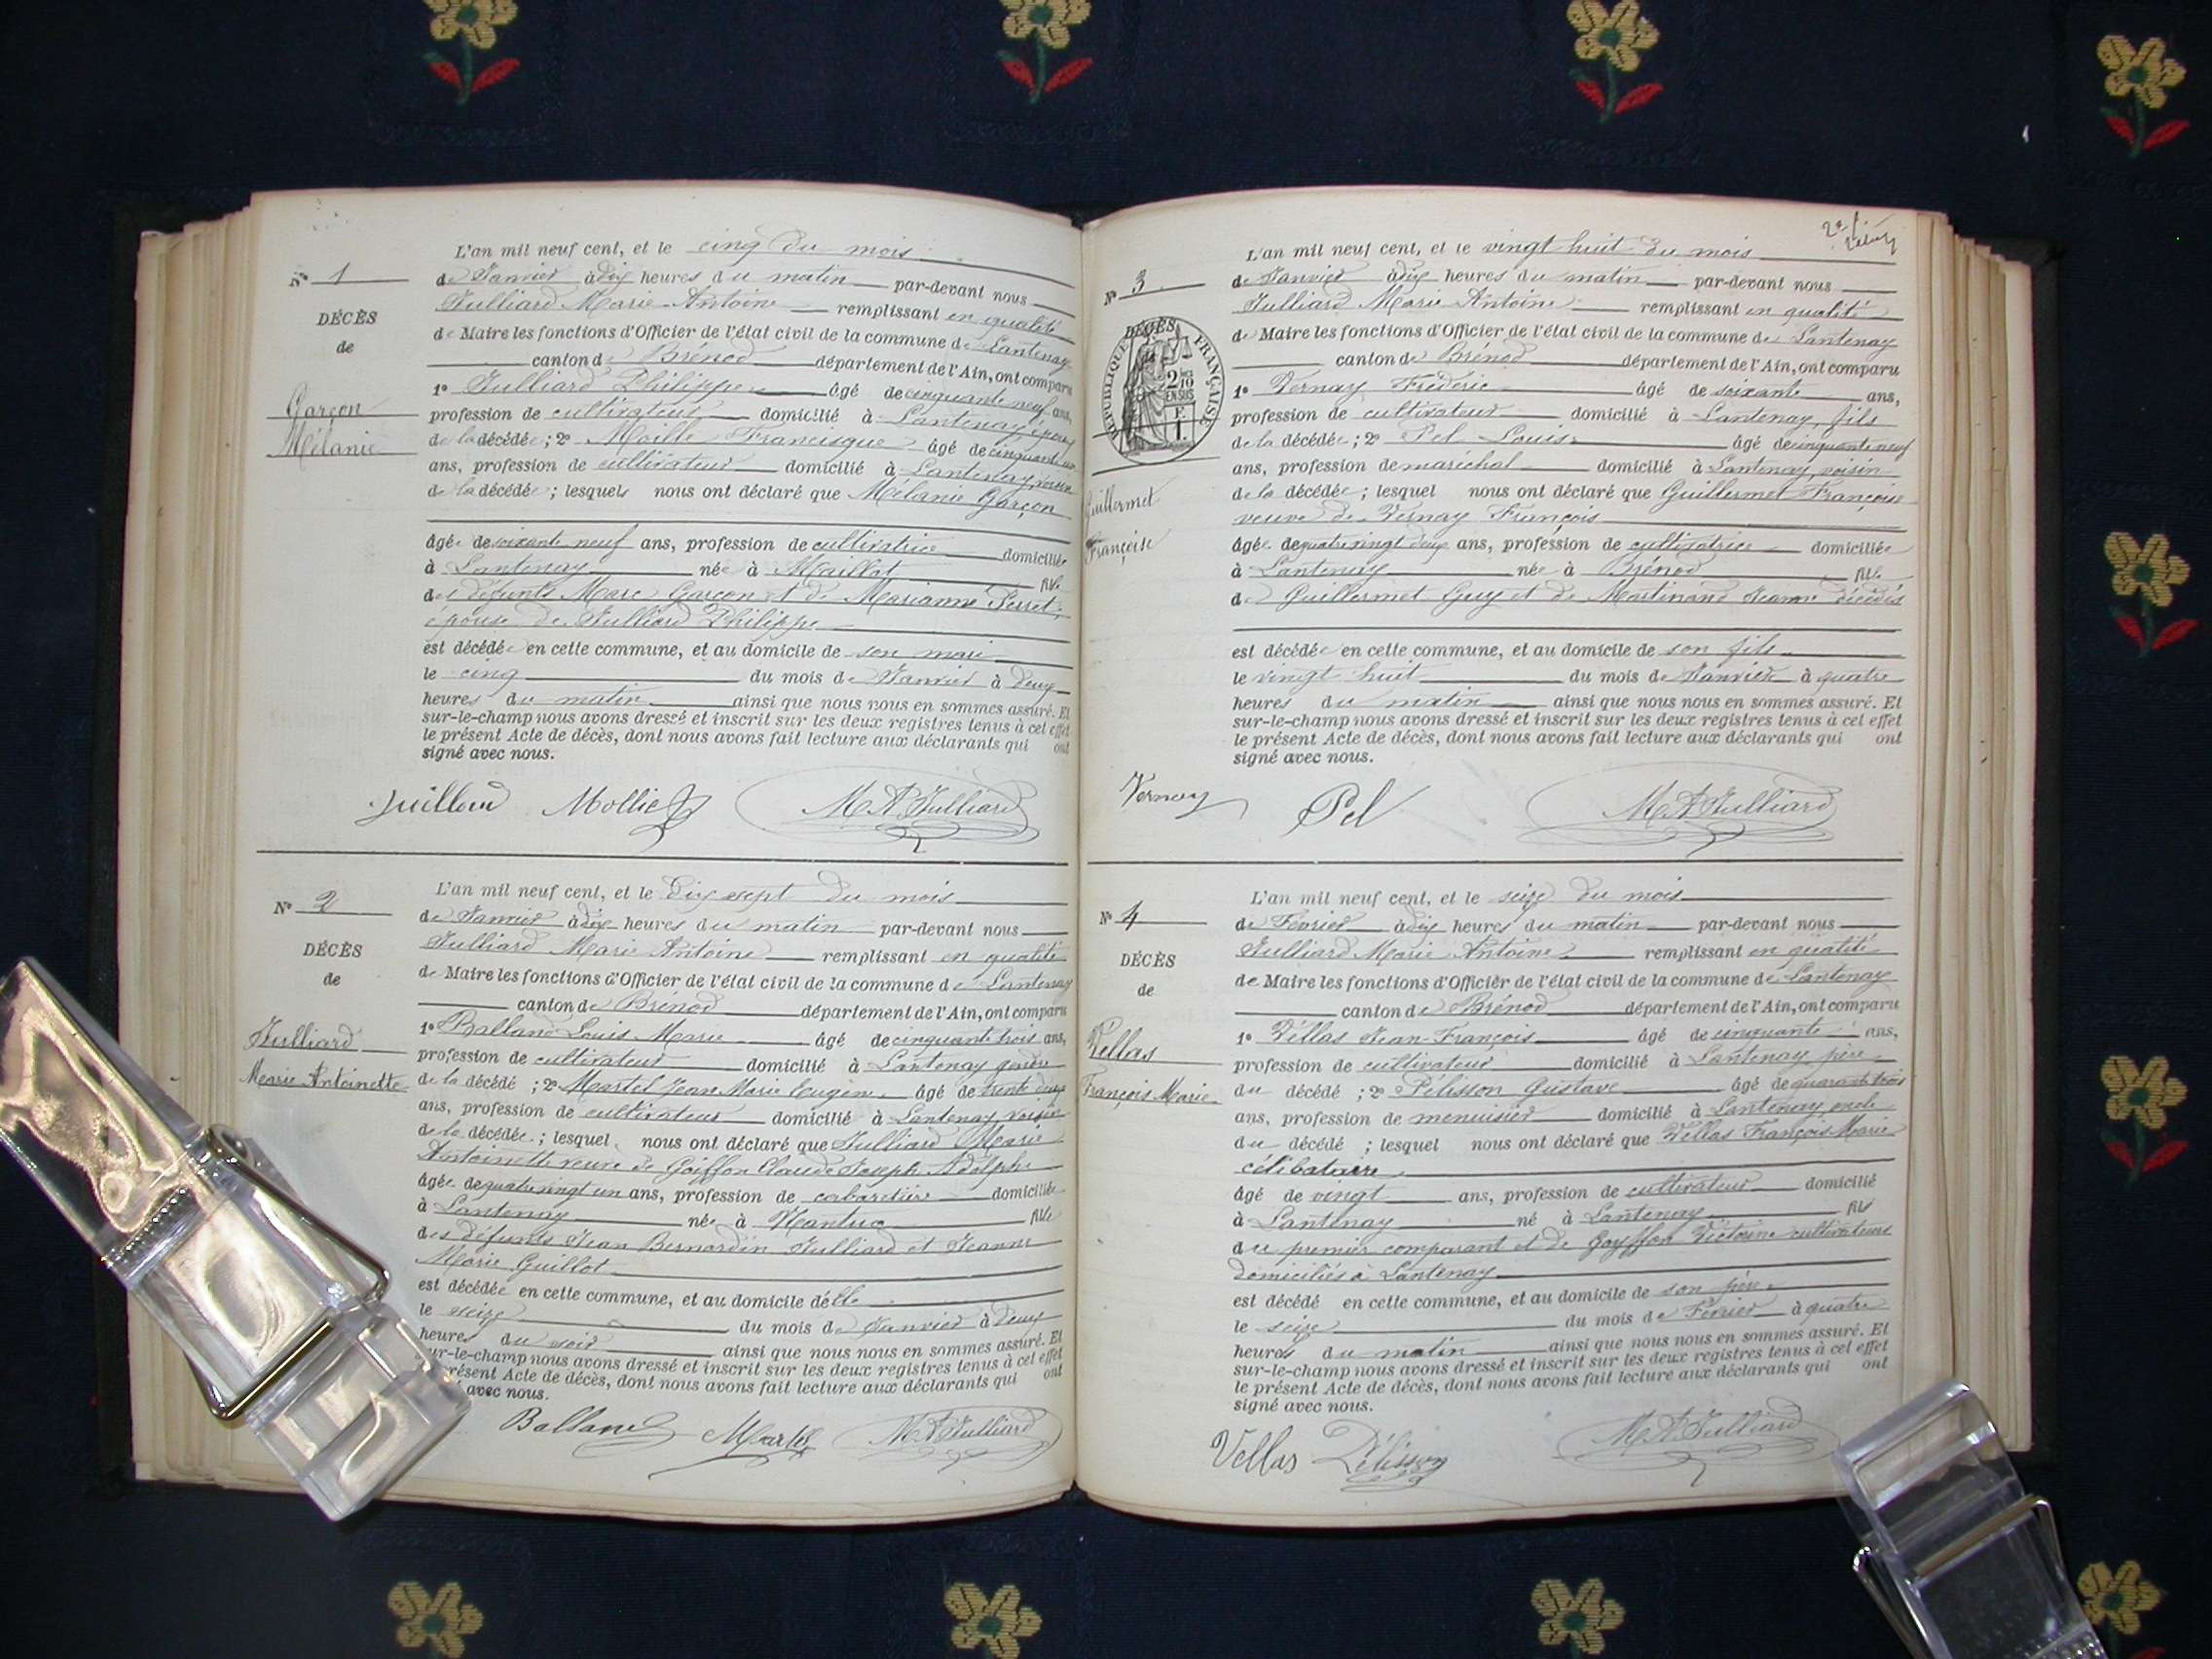 L'an mil neuf cent, et le cinq du mois
N° 1
de Janvier à dix heures du matin par-devant nous
Julliard Marie Antoine remplissant en qualité
DÉCÈS
de Maire les fonctions d'Officier de l'état civil de la commune de Lantenay
de
canton de Brénod département de l'Ain, ont comparu
1° Julliard Philippe âgé de cinquante neuf ans,
Garçon
profession de cultivateur domicilié à Lantenay, époux
Mélanie
de la décédée ; 2° Francisque âgé de cinquante
ans, profession de cultivateur domicilié à Lantenay, voisin
de la décédée ; lesquels nous ont déclaré que Mélanie Garçon
âgée de soixante neuf ans, profession de cultivatrice domiciliée
à Lantenay née à Maillat fille
des défunts Marc Garçon et de Marianne Perret,
épouse de Julliard Philippe
est décédée en cette commune, et au domicile de son mari
le cinq du mois de Janvier à deux
heures du matin ainsi que nous nous en sommes assuré. Et
sur-le-champ nous avons dressé et inscrit sur les deux registres tenus à cet effet
le présent Acte de décès, dont nous avons fait lecture aux déclarants qui ont
signé avec nous.
M A Julliard
L'an mil neuf cent, et le dix sept du mois
N° 2
de Janvier à dix heures du matin par-devant nous
Julliard Marie Antoine remplissant en qualité
DÉCÈS
de Maire les fonctions d'Officier de l'état civil de la commune de Lantenay
de
canton de Brénod département de l'Ain, ont comparu
1° Balland Louis Marie âgé de cinquante trois ans,
Julliard
profession de cultivateur domicilié à Lantenay gendre
Marie Antoinette
de la décédé ; 2° Martel Jean Marie Eugène âgé de trente deux
ans, profession de cultivateur domicilié à Lantenay, voisin
de la décédée ; lesquel nous ont déclaré que Julliard Marie
Antoinette veuve de Goiffon Claude Joseph Adolphe
âgée de quatre vingt un ans, profession de cabaretière domiciliée
à Lantenay née à Nantua fille
des défunts Jean Bernardin Julliard et Jeanne
Marie Guillot
est décédée en cette commune, et au domicile d'elle
le seize du mois de Janvier à deux
heures du soir ainsi que nous nous en sommes assuré. Et
ur-le-champ nous avons dressé et inscrit sur les deux registres tenus à cet effet
résent Acte de décès, dont nous avons fait lecture aux déclarants qui ont
avec nous.
Balland Martel M A Julliard
L'an mil neuf cent, et le vingt huit du mois
N° 3
de Janvier à dix heures du matin par-devant nous
Julliard Marie Antoine remplissant en qualité
DÉCÈS
RÉPUBLIQUE FRANÇAISE
2/10 EN SUS
de Maire les fonctions d'Officier de l'état civil de la commune de Lantenay
canton de Brénod département de l'Ain, ont comparu
1° Vernay Frédéric âgé de soixante ans,
profession de cultivateur domicilié à Lantenay, fils
de la décédée ; 2° Pel Louis âgé de cinquante neuf
ans, profession de maréchal domicilié à Lantenay, voisin
de la décédée ; lesquel nous ont déclaré que Guillermet Françoise
Guillermet
veuve de Vernay François
Françoise
âgée de quatre vingt deux ans, profession de cultivatrice domiciliée
à Lantenay née à Brénod fille
de Guillermet Guy et de Martinand Jeanne décédés
est décédée en cette commune, et au domicile de son fils
le vingt huit du mois de Janvier à quatre
heures du matin ainsi que nous nous en sommes assuré. Et
sur-le-champ nous avons dressé et inscrit sur les deux registres tenus à cet effet
le présent Acte de décès, dont nous avons fait lecture aux déclarants qui ont
signé avec nous.
Vernay Pel M A Julliard
L'an mil neuf cent, et le seize du mois
N° 4
de Février à dix heures du matin par-devant nous
Julliard Marie Antoine remplissant en qualité
DÉCÈS
de Maire les fonctions d'Officier de l'état civil de la commune de Lantenay
de
canton de Brénod département de l'Ain, ont comparu
1° Vellas Jean François âgé de cinquante ans,
Vellas
profession de cultivateur domicilié à Lantenay père
François Marie
du décédé ; 2° Pélisson Gustave âgé de quarante trois
ans, profession de menuisier domicilié à Lantenay oncle
du décédé ; lesquel nous ont déclaré que Vellas François Marie
célibataire
âgé de vingt ans, profession de cultivateur domicilié
à Lantenay né à Lantenay fils
du premier comparant et de Goyffon Victorine cultivateurs
domiciliés à Lantenay
est décédé en cette commune, et au domicile de son père
le seize du mois de Février à quatre
heures du matin ainsi que nous nous en sommes assuré. Et
sur-le-champ nous avons dressé et inscrit sur les deux registres tenus à cet effet
le présent Acte de décès, dont nous avons fait lecture aux déclarants qui ont
signé avec nous.
Vellas Pélisson M A Julliard